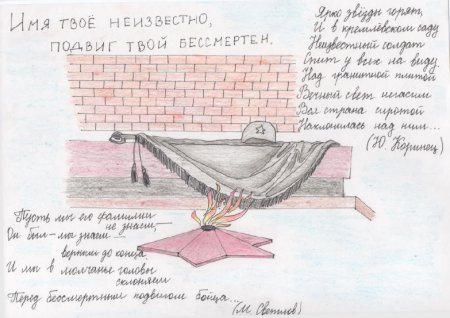 Имя твоё неизвестно,
подвиг твой бессмертен.
Ярко звёзды горят,
И в кремлёвском саду
Неизвестный солдат
Спит у всех на виду
Над гранитной плитой
Вечный свет негасим
Вся страна сиротой
Наклонилась над ним...
(Ю. Коринец)
Пусть мы его фамилии
не знаем,
Он был – мы знаем –
верным до конца.
И мы в молчанье головы
склоняем
Перед бессмертным подвигом бойца...
(М. Светлов)